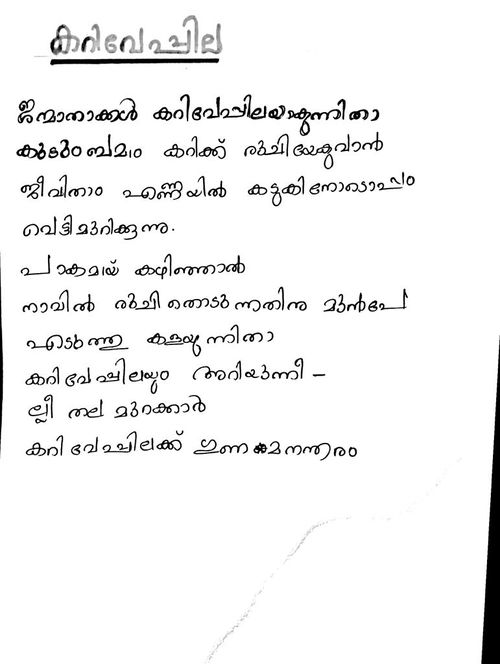 കറിവേപ്പില
ജന്മാതാക്കൾ കറിവേപ്പിലയാകുന്നിതാ
കുടുംബമാം കറിക്ക് രുചിയേകുവാൻ
ജീവിതാം എണ്ണയിൽ കടുകിനോടൊപ്പം
വെട്ടിമുറിക്കുന്നു.
പാകമായ് കഴിഞ്ഞാൽ
നാവിൽ രുചി തൊടുന്നതിനു മുൻപേ
എടുത്തു കളയുന്നിതാ
കറിവേപ്പിലയും അറിയുന്നീ –
ല്ലീ തല മുറക്കാർ
കറിവേപ്പിലക്ക് ഗുണമനന്തരം